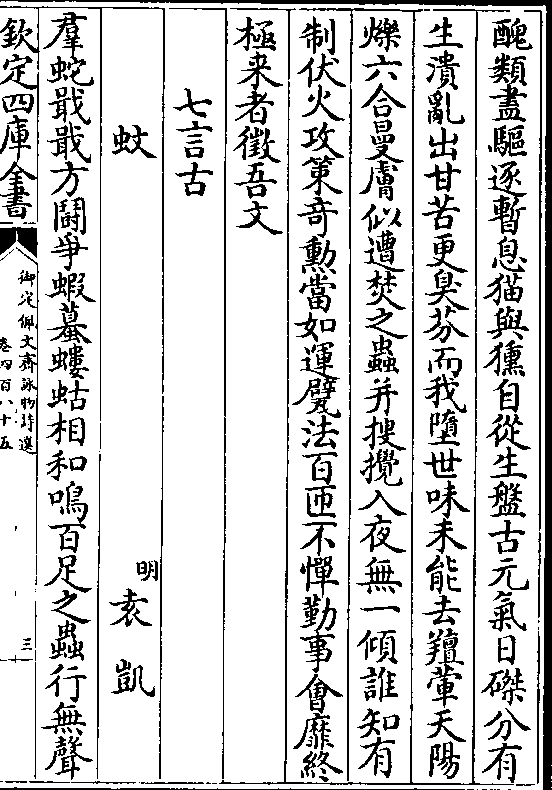 醜類盡驅逐暫息猫與獯自從生盤古元氣日磔分有
生潰亂出甘苦更臭芬而我墮世味未能去羶葷天陽
爍六合曼膚似遭焚之蟲并搜攪入夜無一傾誰知有
制伏火攻策竒勲當如運甓法百匝不憚勤事會靡終
極来者徴吾文
七言古
蚊
明
袁凱
羣蛇戢戢方鬭爭蝦蟇螻蛄相和鳴百足之蟲行無聲
欽定四庫全書
御定佩文齋詠物詩選
卷四百八十五
三